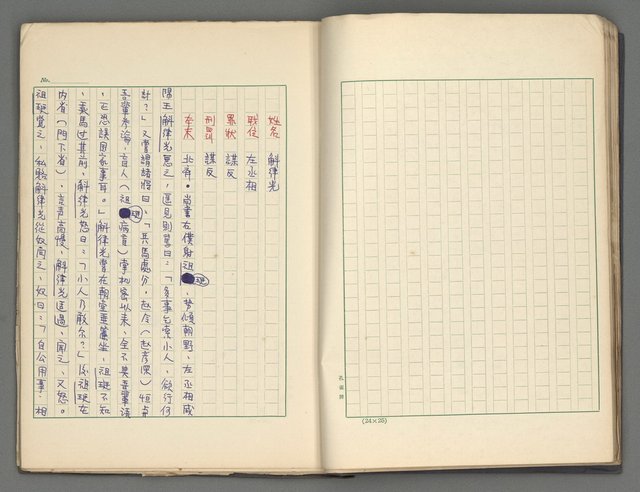 No.
姓名　斛律光
職位　左丞相
罪狀　謀反
刑罰　謀反
本末　北齊。尚書左僕射祖珽，勢傾朝野，左丞相咸
陽王斛律光惡之，遥見則罵曰：「多事乞索小人，欲行何
計？」又嘗謂諸將曰：「兵馬處分，赵令（赵彥深）恒与
吾輩参論，盲人（祖珽病盲）掌机密以來，全不與吾輩語
，正恐誤国家事耳。」斛律光嘗在朝堂垂簾坐，祖珽不知
，乘馬过其前，斛律光怒曰：「小人乃敢尔？」后祖珽在
内省（門下省），言声高慢，斛律光适過，闻之，又怒。
祖珽覺之，私賂斛律光從奴问之，奴曰：「自公用事，相
(24×25)